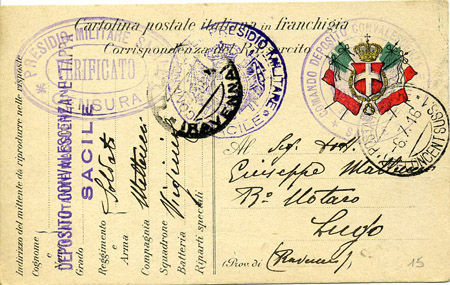 Cartolina postale italiana in franchigia
Corrispondenza del R. Esercito
PRESIDIO MILITARE
VERIFICATO
CENSURA
PRESIDIO MILITARE
SACILE
(RAVENNA)
COMANDO DEPOSITO CONVALE
6-7-16
Al Sig.
Giuseppe
Notaro
Lugo
(Prov. di (Ravenna)
15
Indirizzo del mittente da riprodurre nelle risposte
Cognome
Nome
Grado
DEPOSITO CONVALESCENZA E TAPPA
SACILE
Reggimento
Soldato
e
Arma
Compagnia
Squadrone
Batteria
Riparti speciali